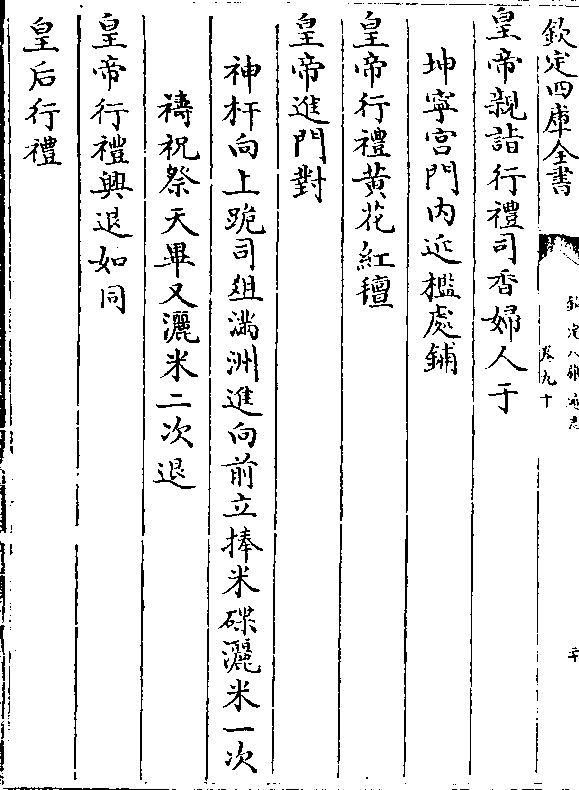 欽定四庫全書
欽定八旗通志
卷九十
皇帝親詣行禮司香婦人于
坤寧宮門内近檻處鋪
皇帝行禮黄花紅氊
皇帝進門對
神杆向上跪司俎滿洲進向前立捧米碟灑米一次
禱祝祭天畢又灑米二次退
皇帝行禮興退如同
皇后行禮